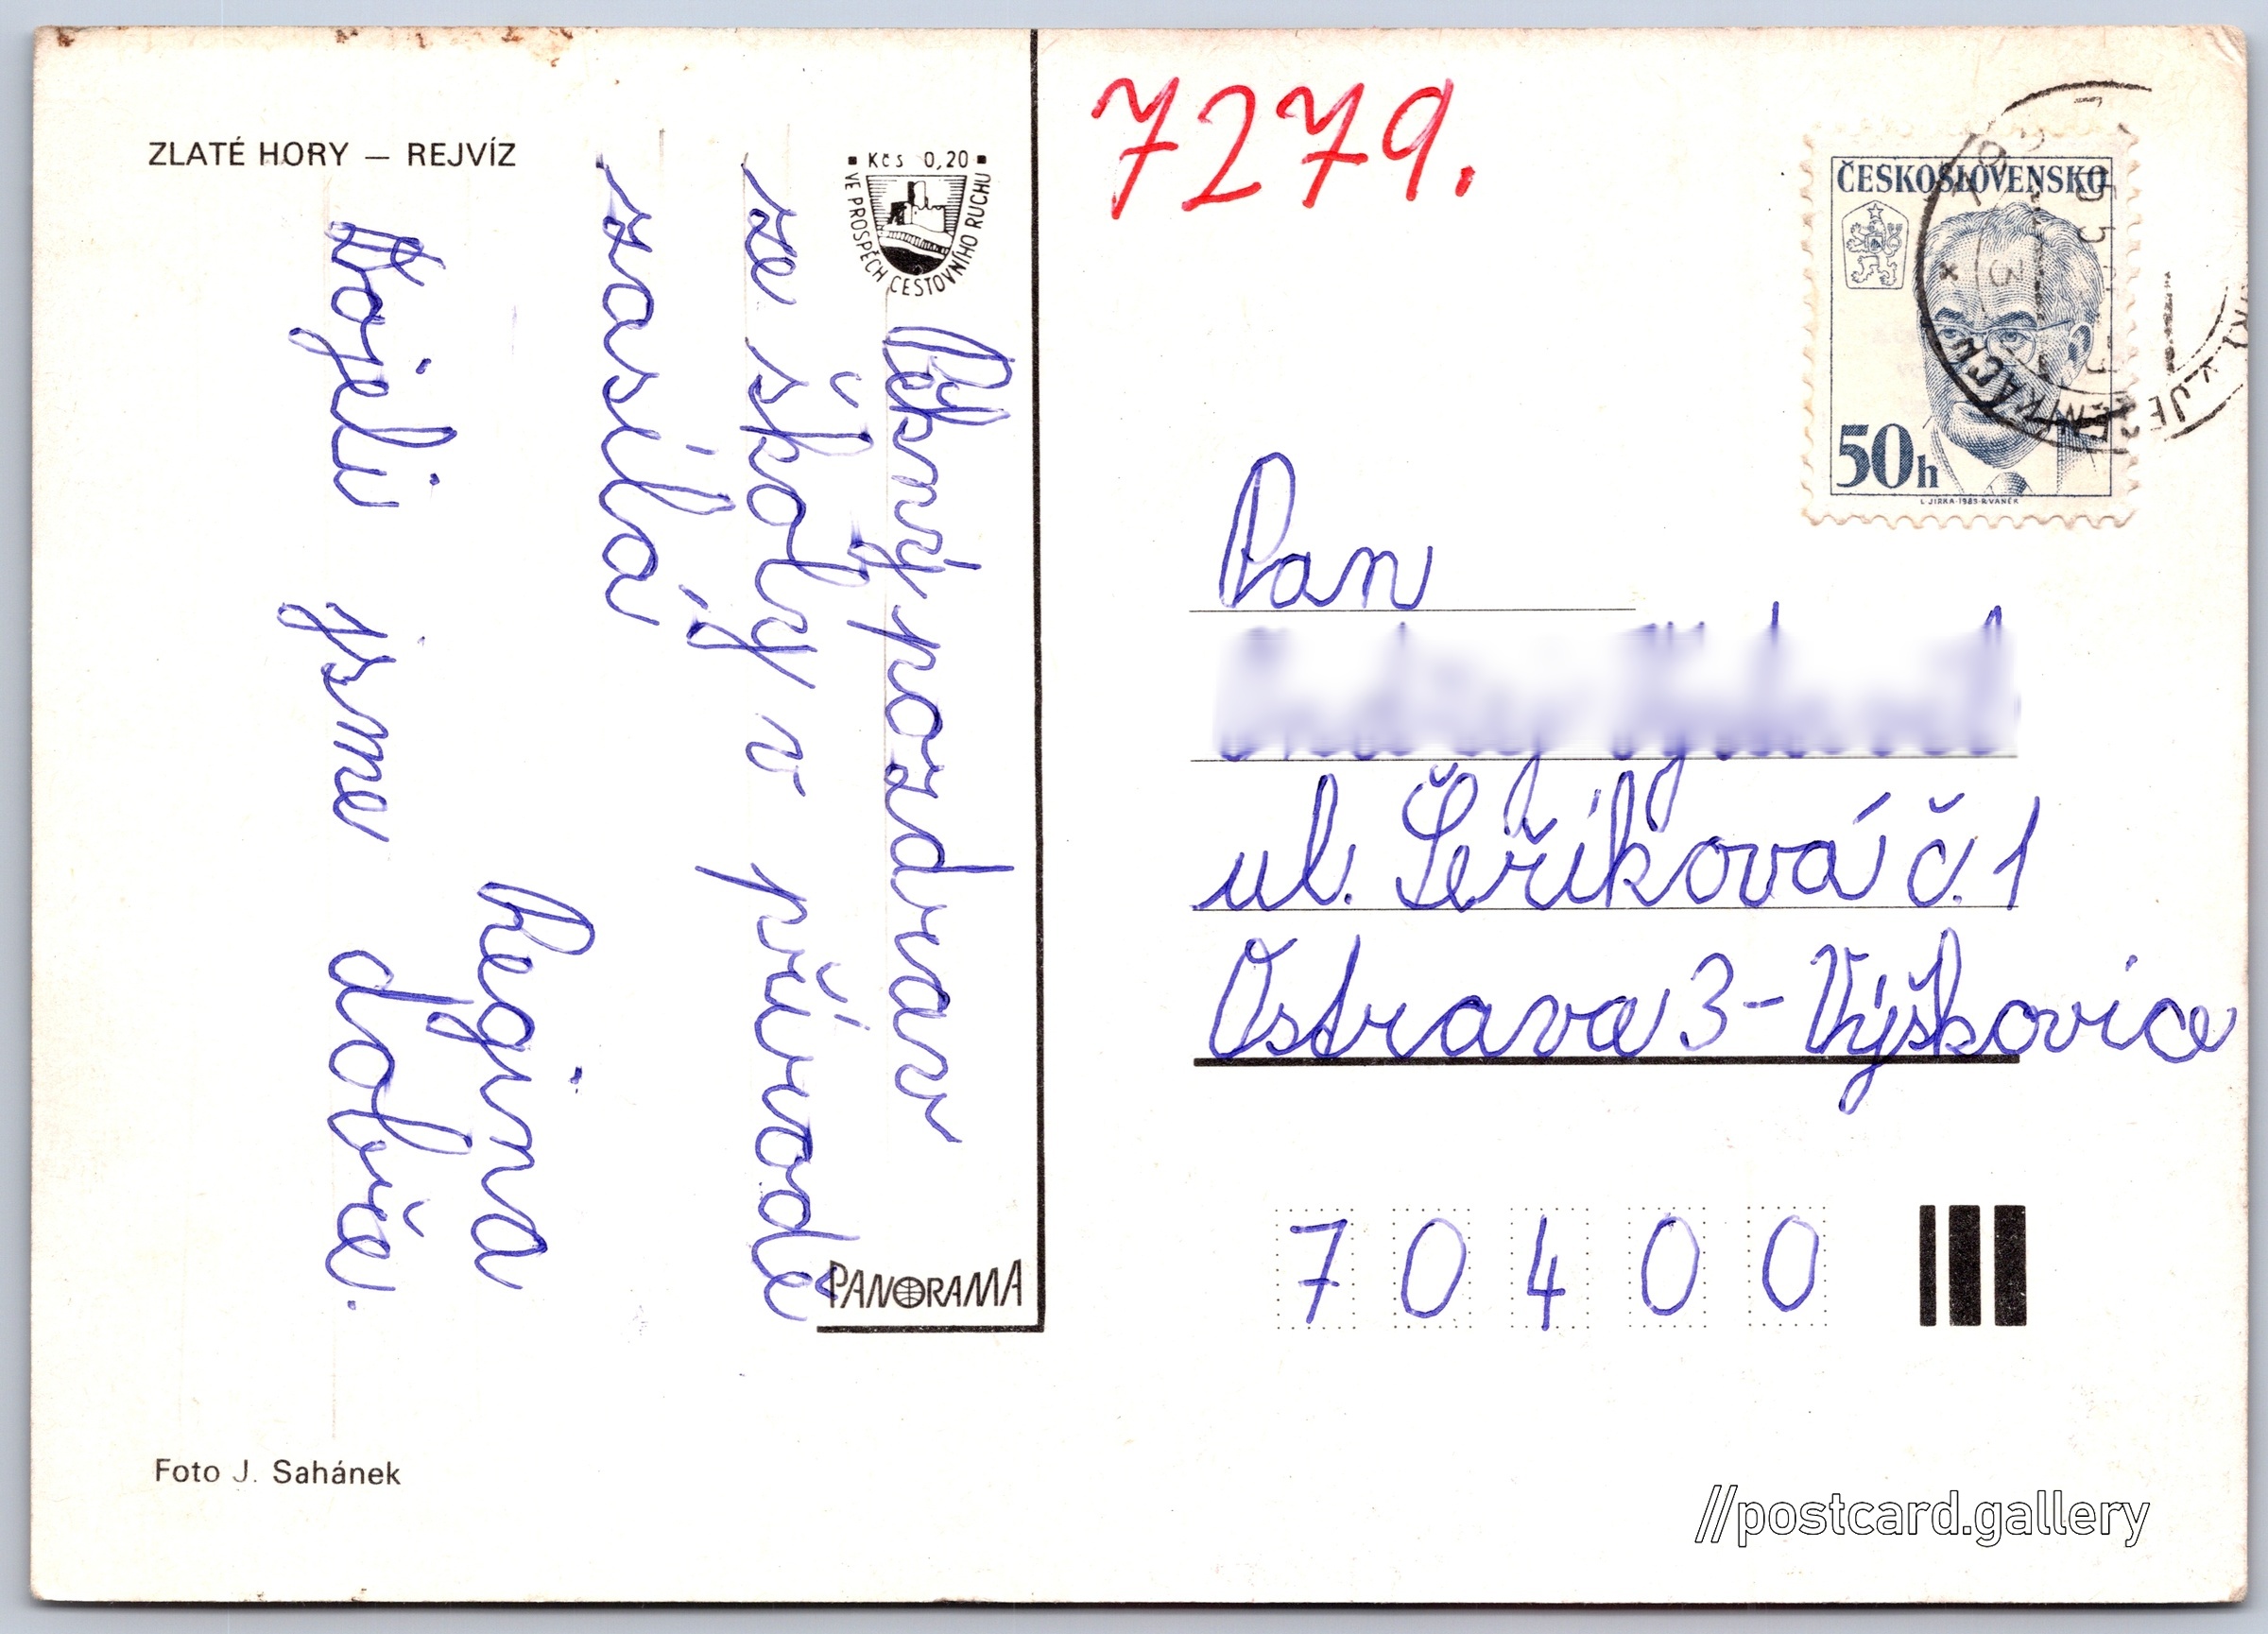 ZLATÉ HORY — REJVÍZ
■ Kčs 0,20 ■
VE PROSPĚCH CESTOVNÍHO RUCHU
Pěkný pozdrav
ze školy v přírodě
zasílá
Regina
Dojeli jsme dobře.
PANORAMA
Foto J. Sahánek
7279.
ČESKOSLOVENSKO
50h
L. JIRKA-1983-R.VANĚK
Pan
ul. Šeříková č. 1
Ostrava 3 - Výškovice
70400
//postcard.gallery